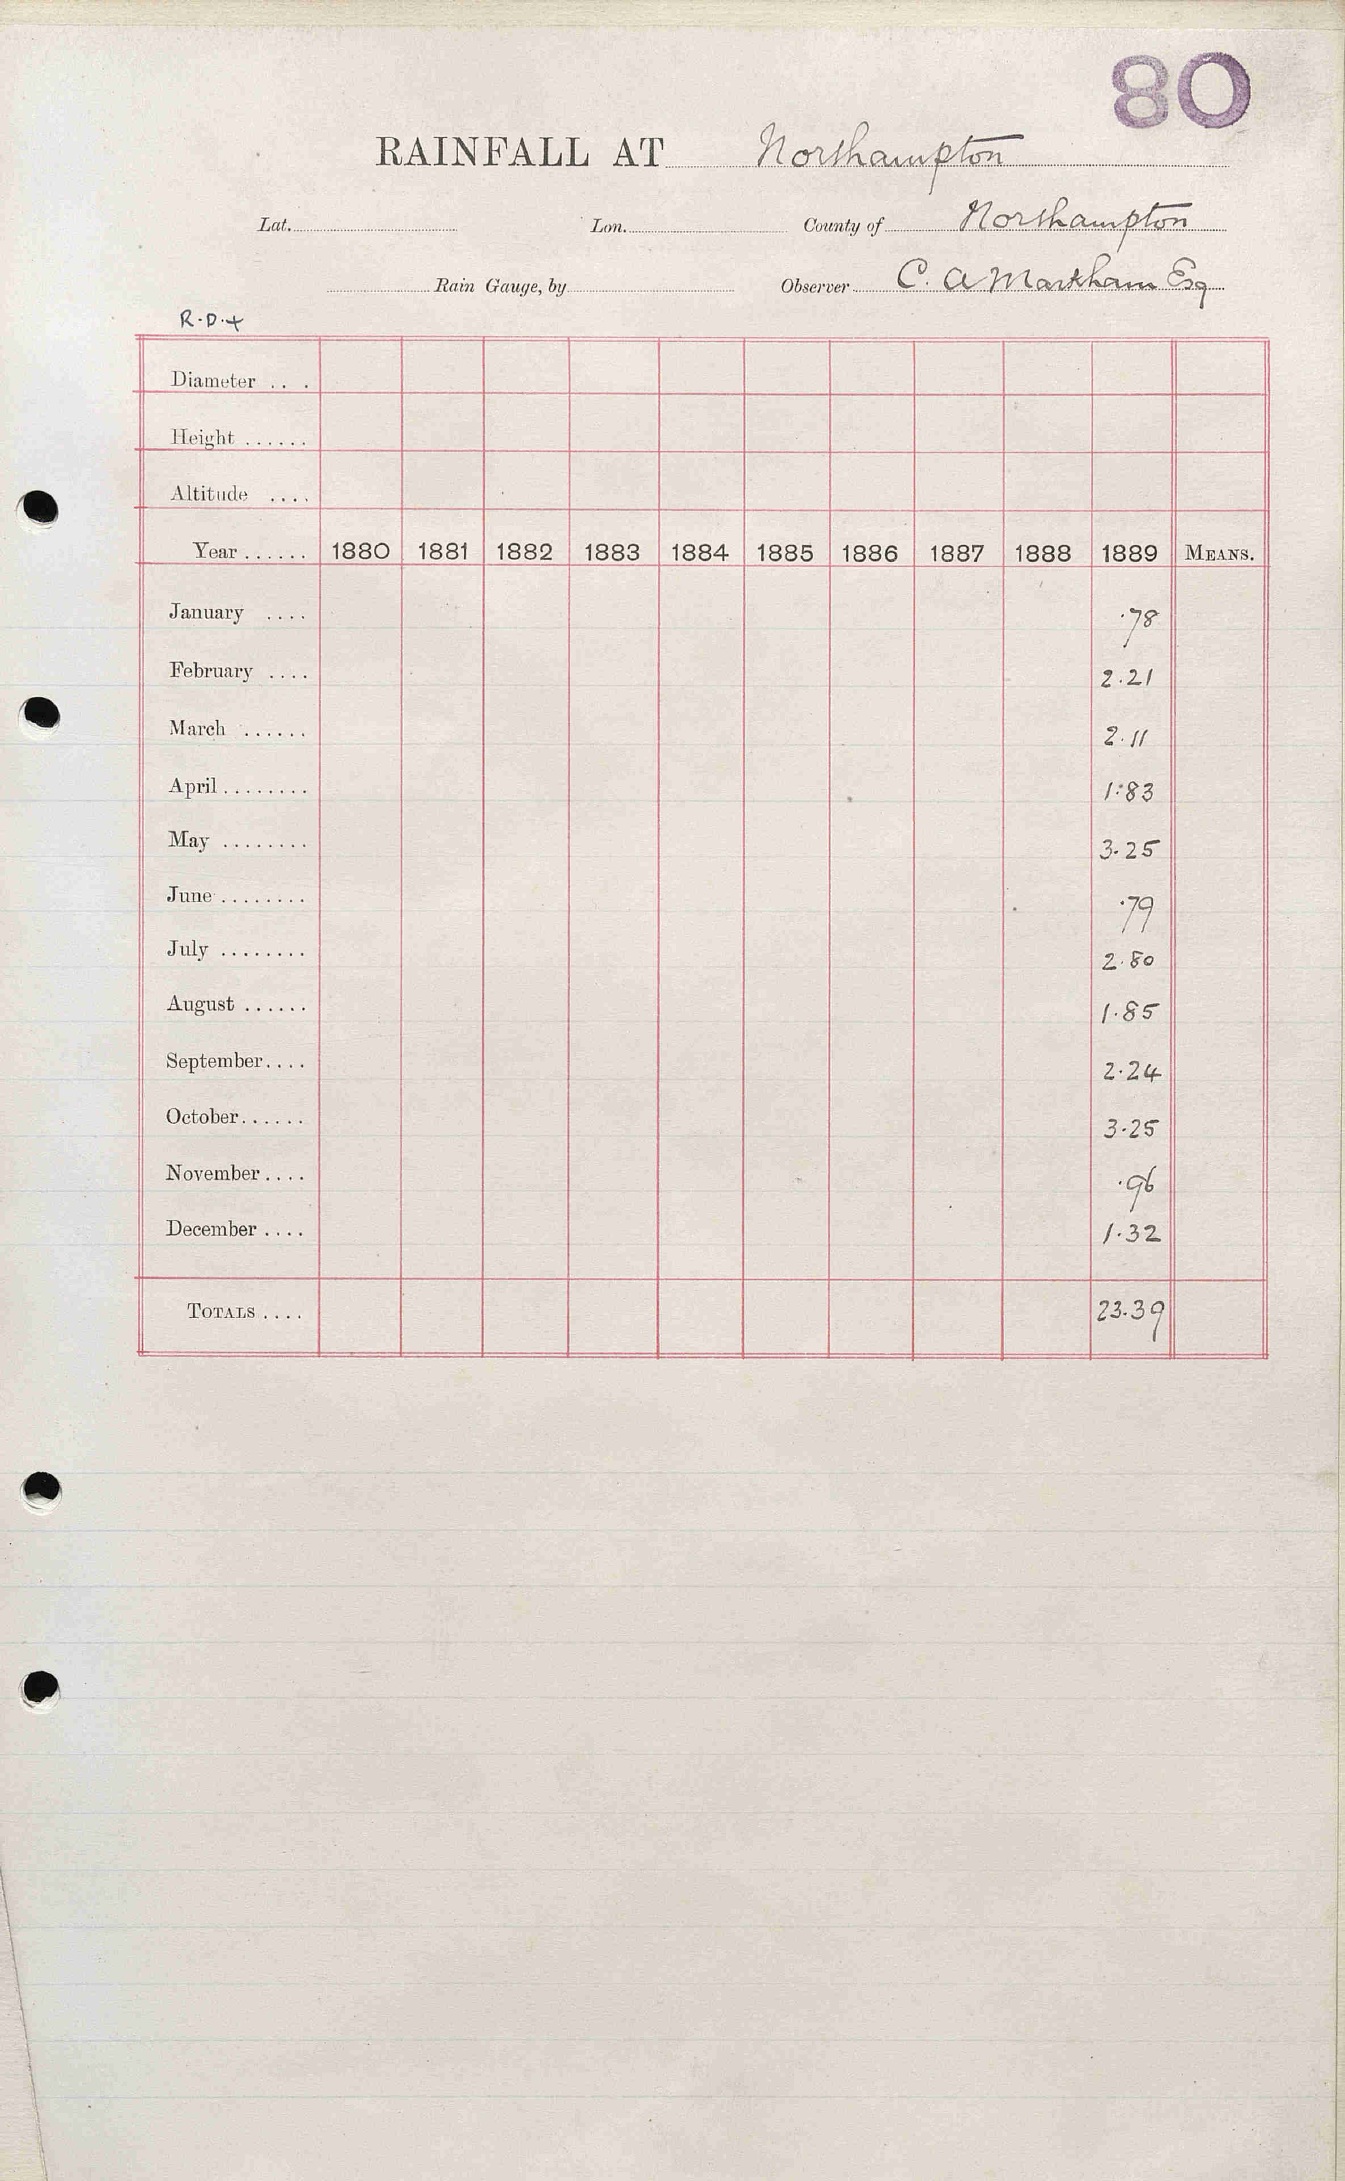 80
RAINFALL AT Northampton
Lat. Lon. County of Northampton
Rain Gauge, by Observer C. A Markham Esq
R.D.+
Diameter . . .
Height ......
Altitude ....
Year ...... 1880 1881 1882 1883 1884 1885 1886 1887 1888 1889 MEANS.
January .... .78
February .... 2.21
March ...... 2.11
April ........ 1.83
May ........ 3.25
June ........ .79
July ........ 2.80
August ...... 1.85
September.... 2.24
October...... 3.25
November.... .96
December .... 1.32
TOTALS .... 23.39